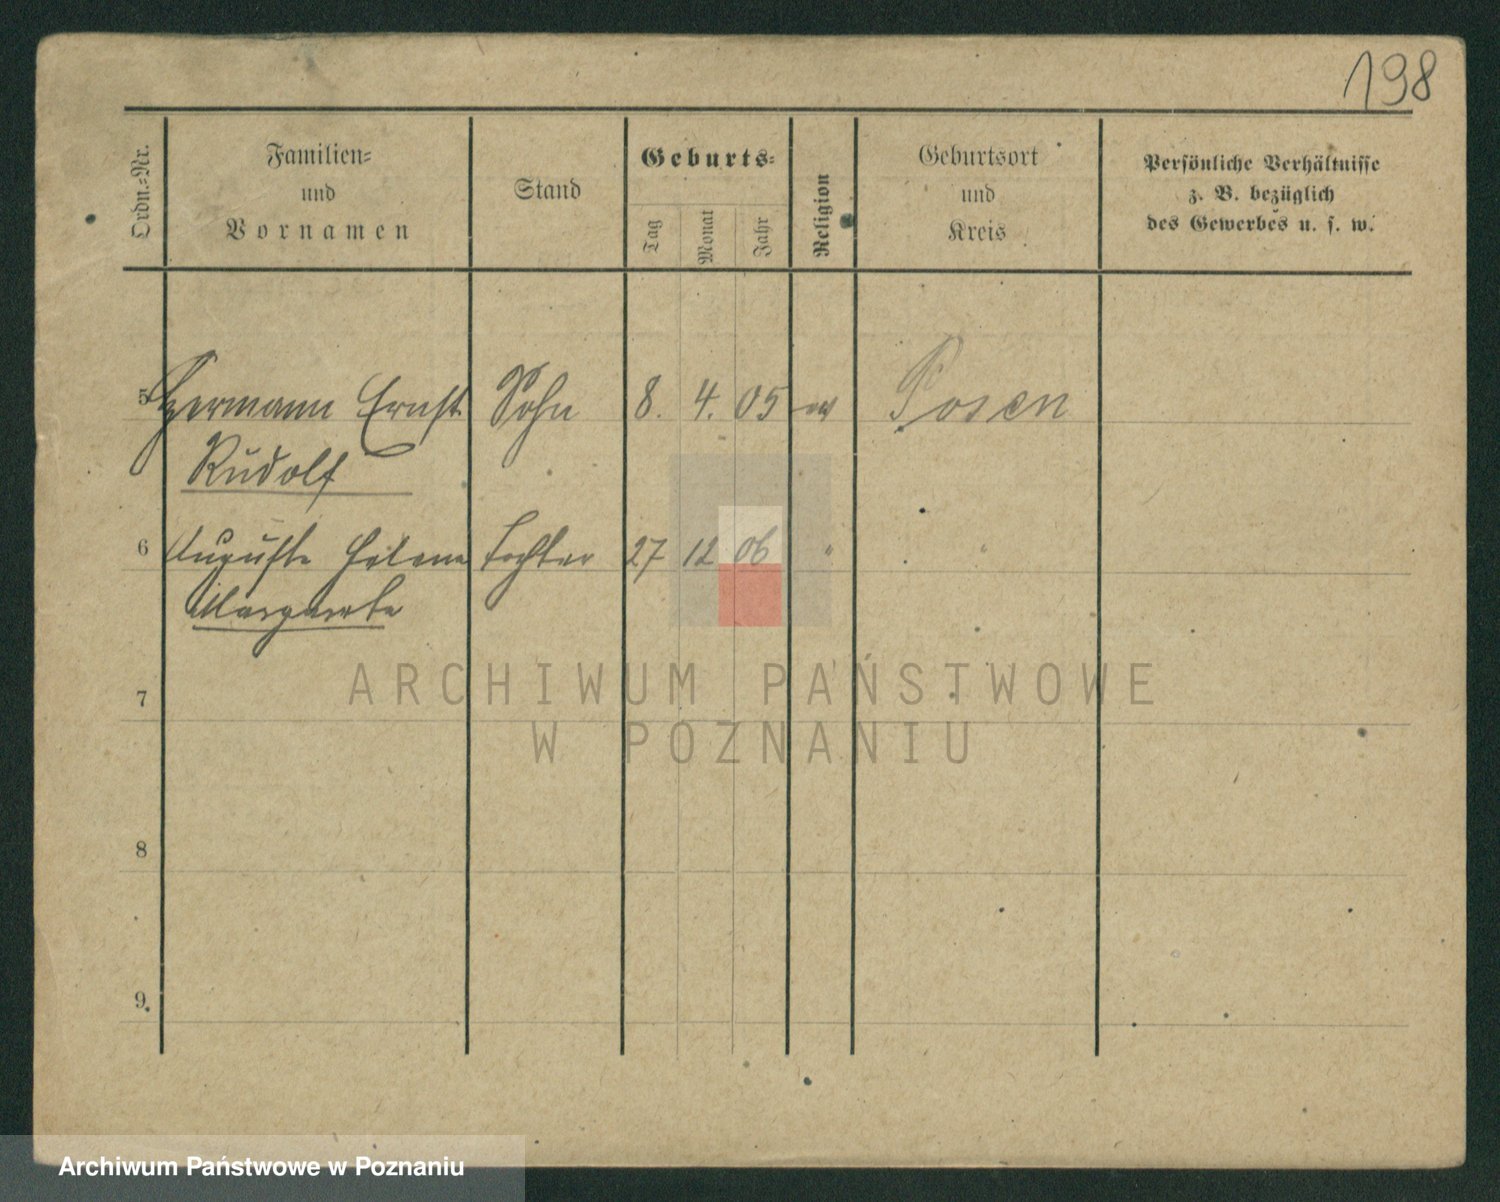 198
Ordn.-Nr.
Familien-
und
Vornamen
Stand
Geburts-
Tag
Monat
Jahr
Religion
Geburtsort
und
Kreis
Persönliche Verhältnisse
z. B. bezüglich
des Gewerbes u. s. w.
5 Hermann Ernst Sohn 8. 4. 05 ev Posen
Rudolf
6 Auguste Helene Tochter 27 12 06 " "
Margarete
7
8
9
ARCHIWUM PAŃSTWOWE
W POZNANIU
Archiwum Państwowe w Poznaniu